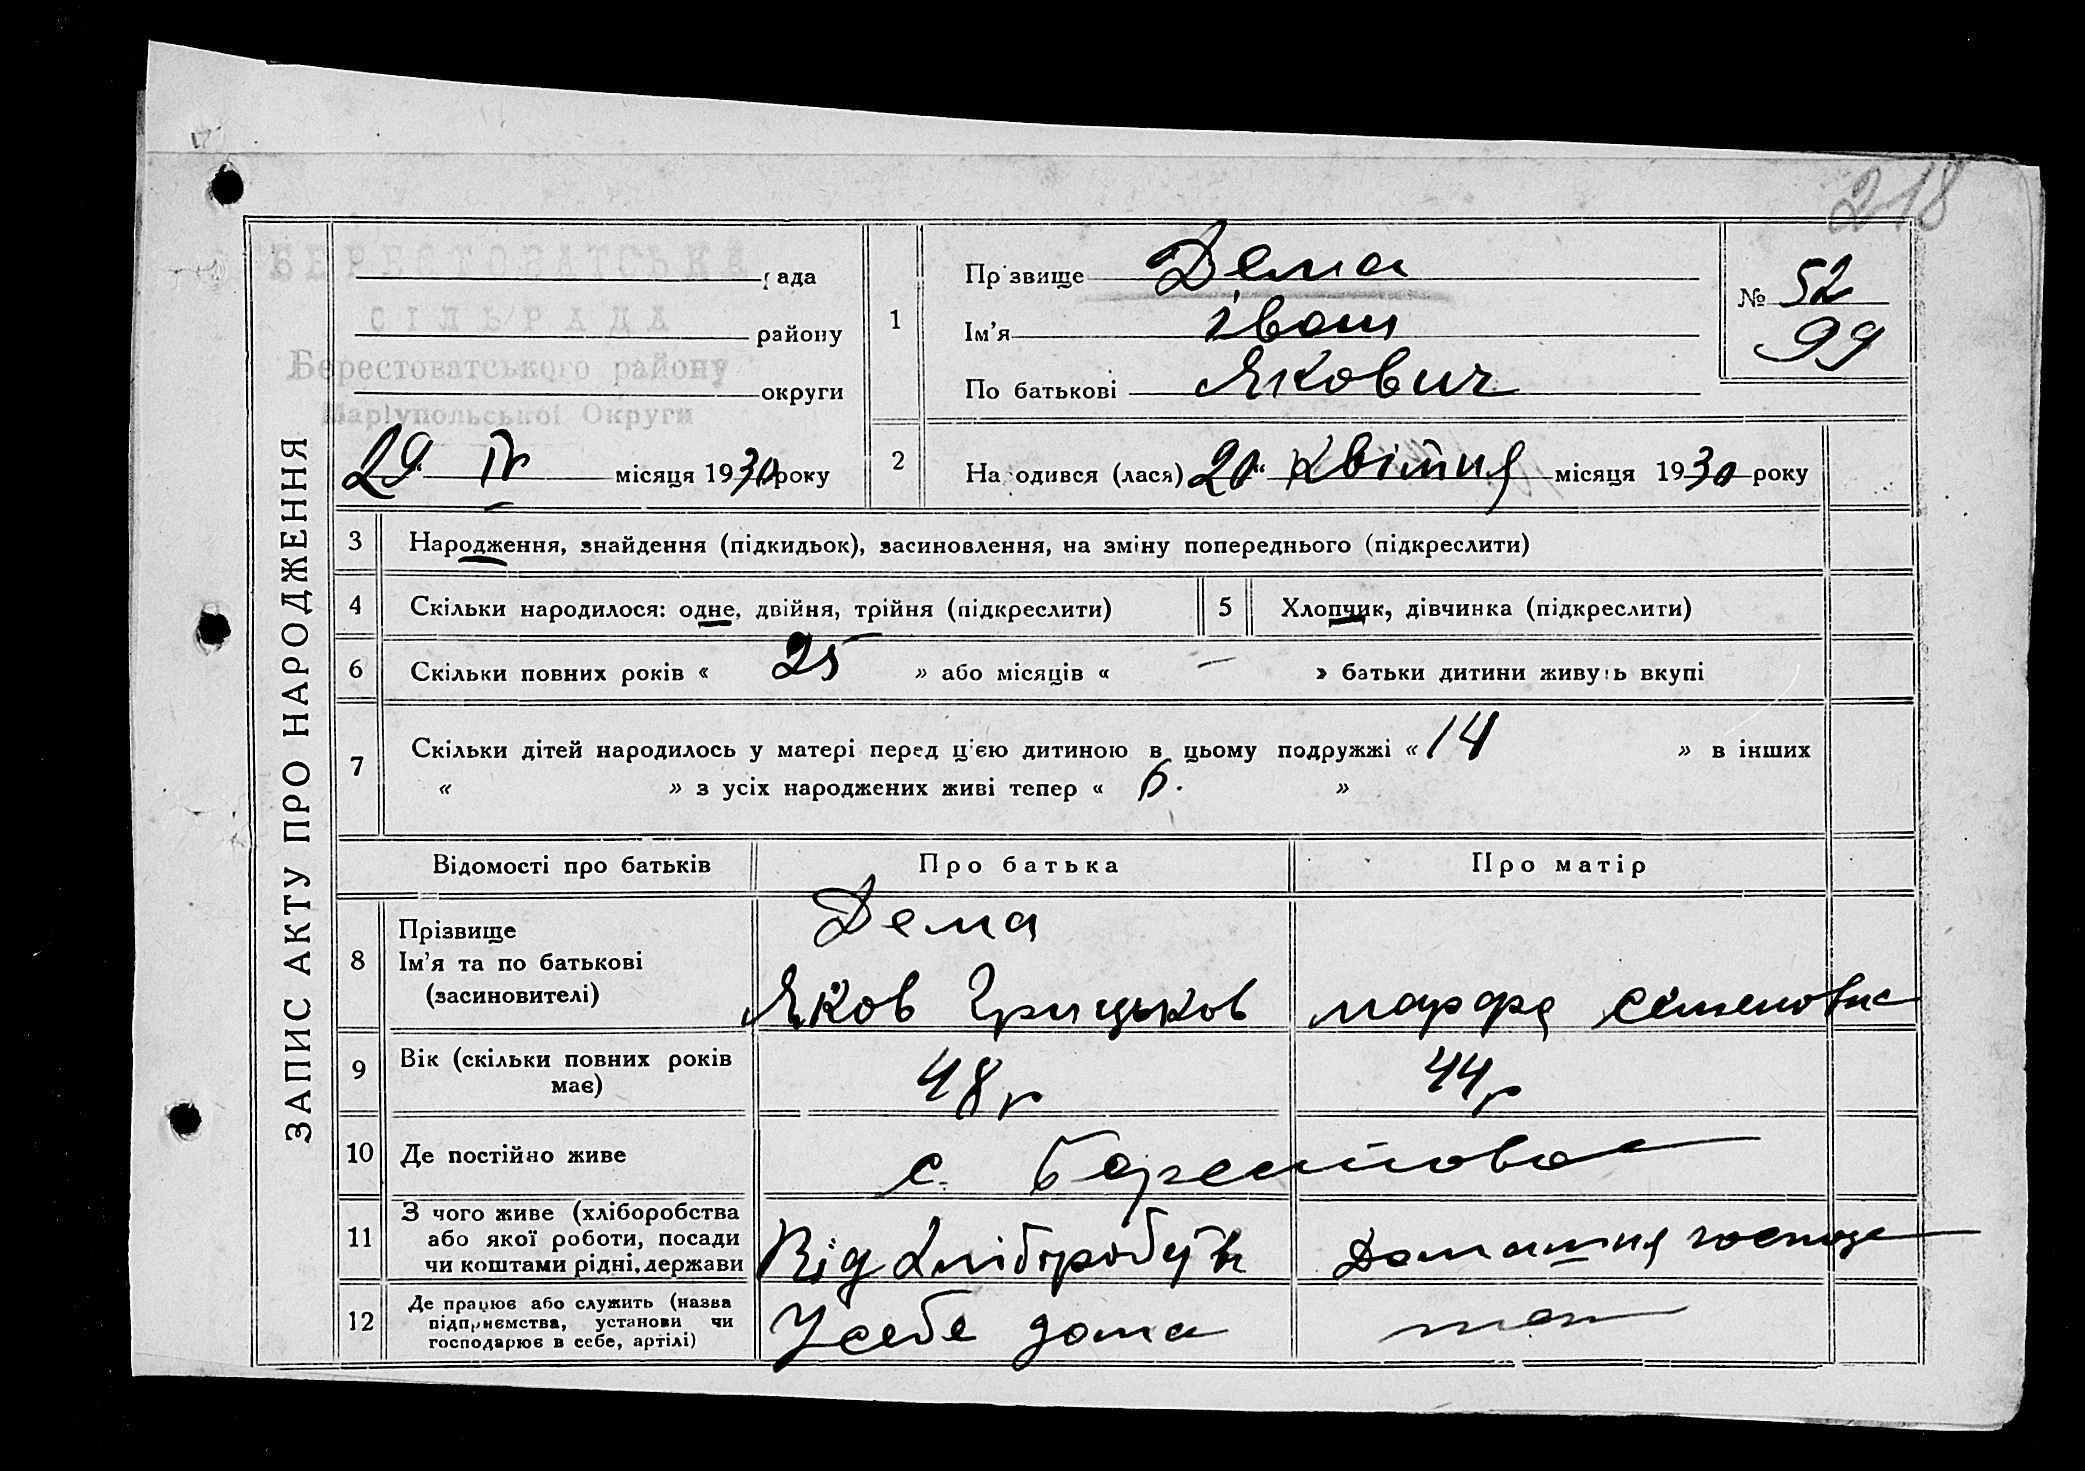 218
БЕРЕСТОВАТСЬКА
СІЛЬРАДА
Берестоватського району
Маріупольської Округи
рада
району
округи
29 IV місяця 1930 року
1
Прізвище Дема
Ім'я Іван
По батькові Якович
№ 52
99
2
Народився (лася) 20 " Квітня місяця 1930 року
ЗАПИС АКТУ ПРО НАРОДЖЕННЯ
3 Народження, знайдення (підкидьок), засиновлення, на зміну попереднього (підкреслити)
4 Скільки народилося: одне, двійня, трійня (підкреслити)
5 Хлопчик, дівчинка (підкреслити)
6 Скільки повних років « 25 » або місяців « — » батьки дитини живуть вкупі
7 Скільки дітей народилось у матері перед ц'єю дитиною в цьому подружжі « 14 » в інших
« » з усіх народжених живі тепер « 6. »
Відомості про батьків Про батька Про матір
8 Прізвище
Ім'я та по батькові
(засиновителі)
Дема
Яков Грицьков
марфа Семеновна
9 Вік (скільки повних років
має)
48 р
44 р
10 Де постійно живе с. Берестова
11 З чого живе (хліборобства
або якої роботи, посади
чи коштами рідні, держави
Від
Домашня господ
12 Де працює або служить (назва
підприємства, установи чи
господарює в себе, артілі)
У себе дома